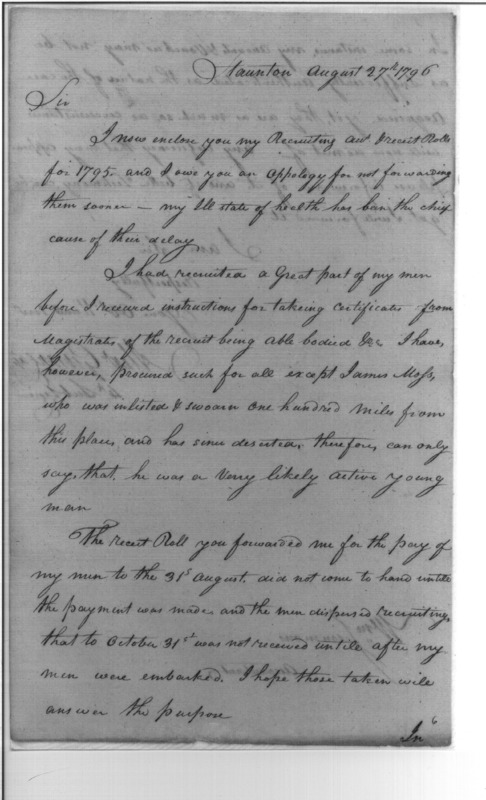 Staunton August 27th 1796
Sir
I now enclose you my Recruiting act & recit Rolls
for 1795 and I owe you an appology for not forwarding
them sooner — my Ill state of health has ban the chief
cause of their delay,
I had recruited a Great part of my men
before I received instructions for takeing certificates from
Magistrates of the recruit being able bodied &c. I have,
however, procured such for all except James Moss,
who was inlisted & swoarn one hundred miles from
this place, and has since deserted, therefore, can only
say, that he was a Very likely active young
man
The receit Roll you forwarded me for the pay of
my men to the 31st August, did not come to hand untile
the payment was made and the men dispersed recruiting,
that to October 31st was not received untile after my
men were embarked. I hope those taken will
answer the purpose
In